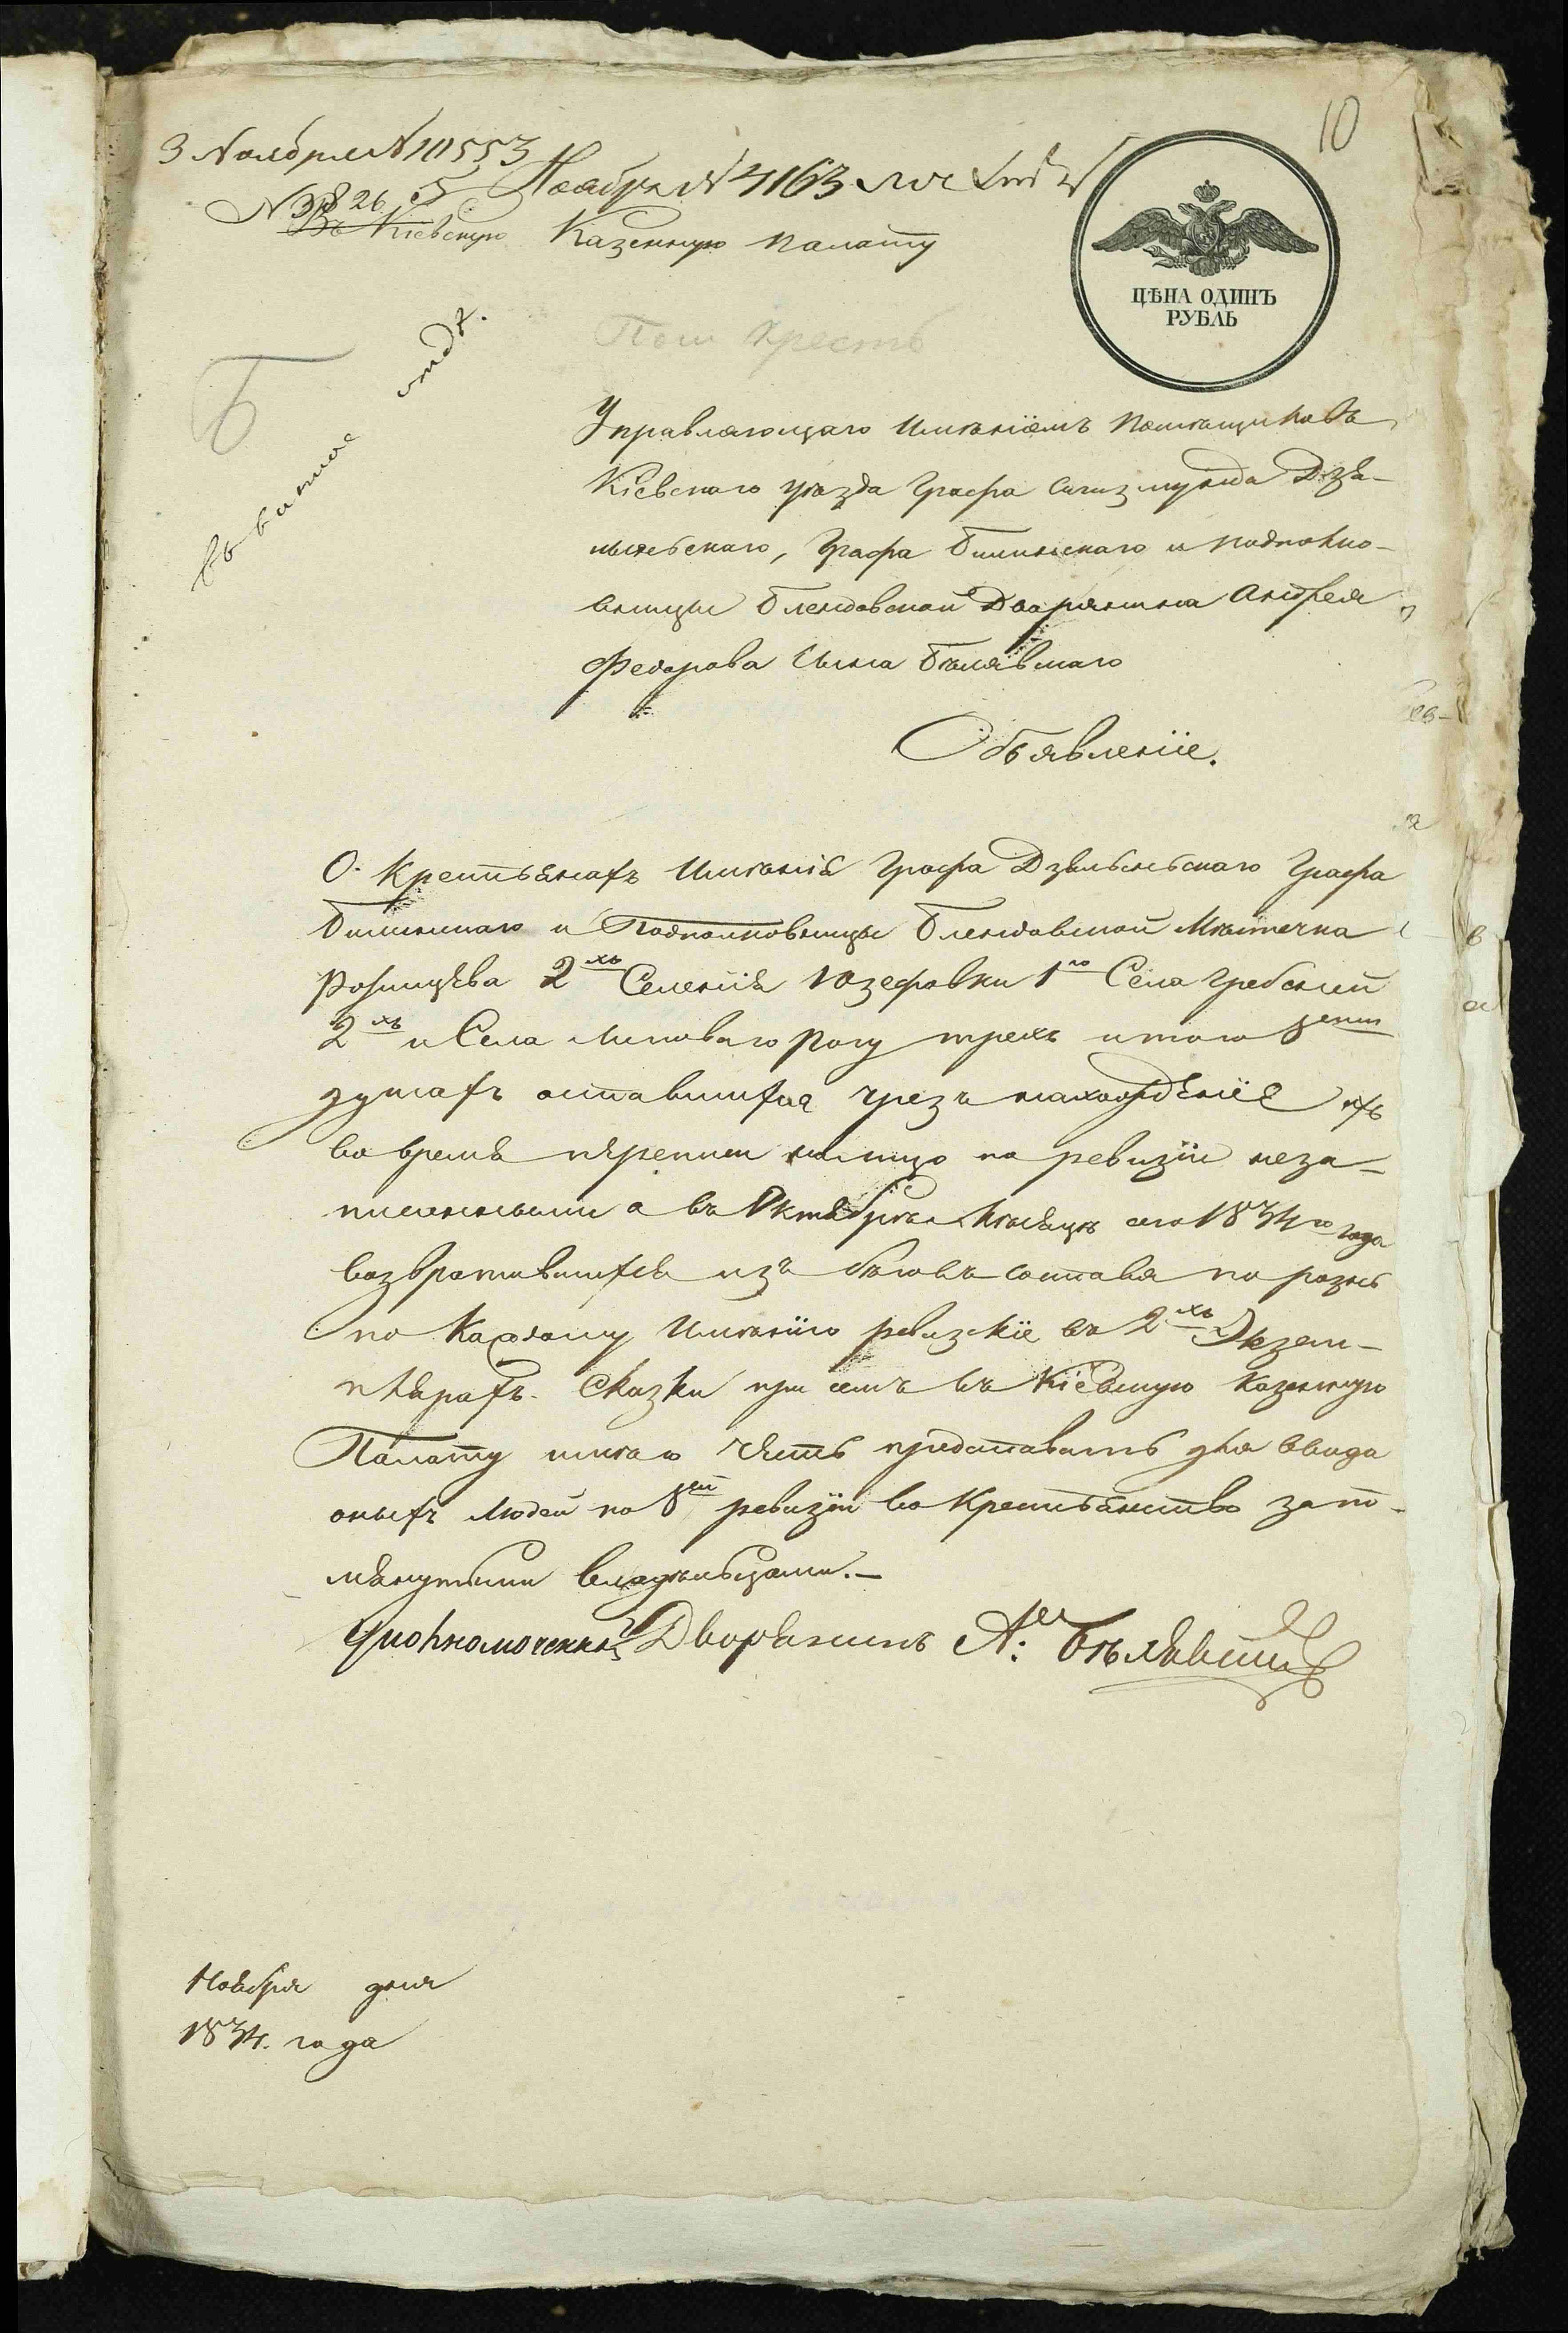 10
3 Ноября № 10553
Ноября № 4163
№ 3826
Въ Кіевскую Казенную палату
ЦѢНА ОДИНЪ
РУБЛЬ
Б
отд.
Управляющаго имѣніемъ помѣщиковъ
Кіевскаго уѣзда Графа Сигизмунда Дзя-
лынскаго, Графа Билинскаго и подполко-
вницы Блендовской Дворянина Андрея
Федорова сына Бѣлявскаго
Объявленіе.
О Крестьянахъ имѣнія Графа Дзялынскаго Графа
Билинскаго и Подполковницы Блендовской Мѣстечка
2хъ Селенія Юзефовки 1го Села Гребенки
2хъ и Села Липоваго Рогу трехъ итого 8ми
душахъ оставшихся чрезъ нахожденіе ихъ
во время переписи по ревизіи неза-
писанными а въ Октябрѣ мѣсяцѣ сего 1834го года
возвратившихся изъ бѣговъ составя по рознь
по каждому имѣнію ревизскіе въ 2хъ Экзем-
плярахъ сказки при семъ въ Кіевскую Казенную
Палату имѣю честь представить для ввода
оныхъ людей по 8й ревизіи во крестьянство за упо-
мянутыми владѣльцами.—
Уполномоченный Дворянинъ А: Бѣлявскій
Ноября дня
1834. года